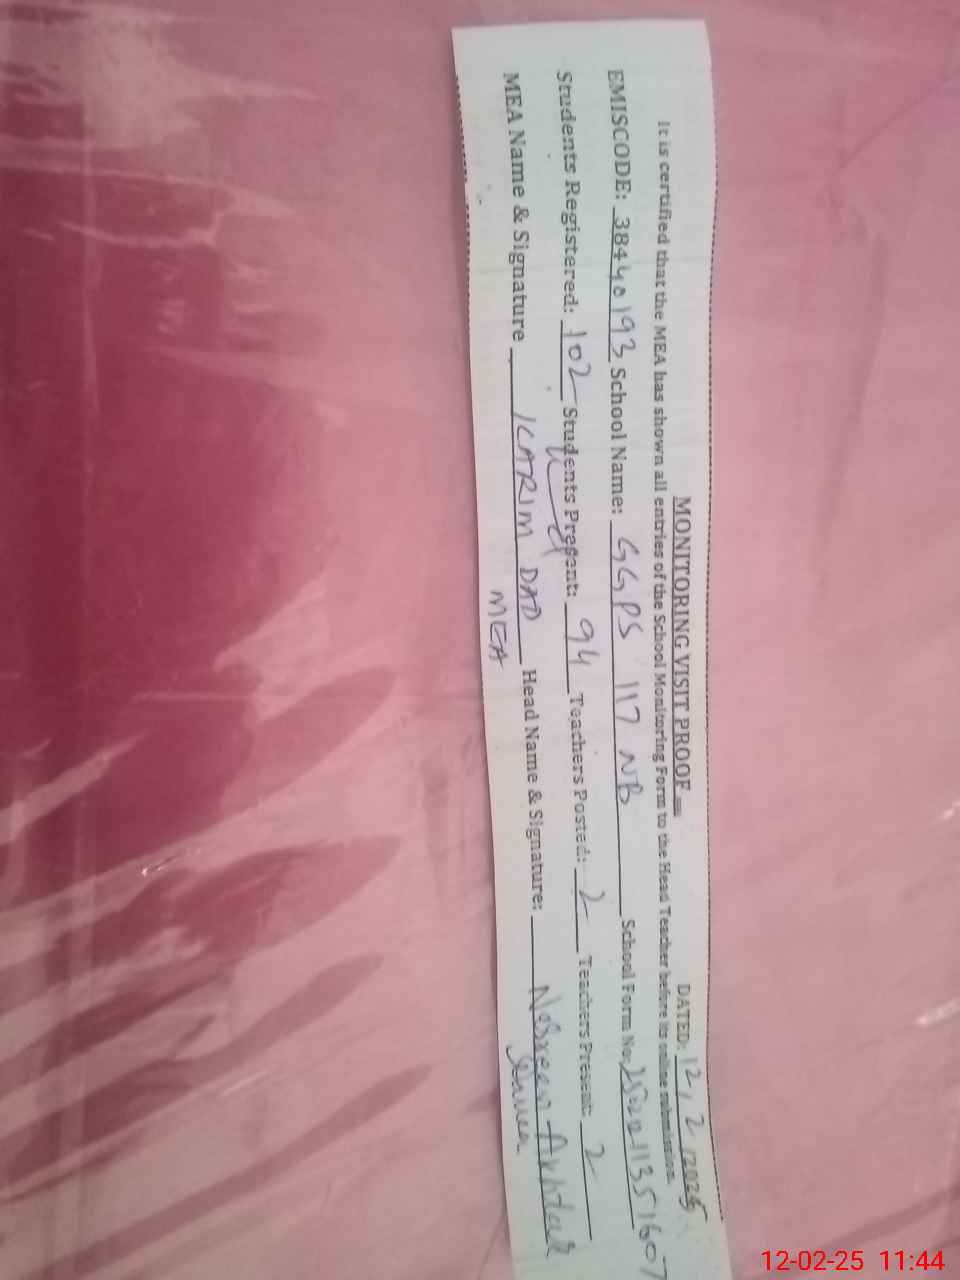 MONITORING VISIT PROOF
DATED: 12/2/2025
It is certified that the MEA has shown all entries of the School Monitoring Form to the Head Teacher before its online submission.
EMISCODE: 38440193 School Name: GGPS 117 NB School Form No:
Students Registered: 102 Students Present: 94 Teachers Posted: 2 Teachers Present: 2
MEA Name & Signature KARIM DAD Head Name & Signature: Nasreen Akhtar
MEA
12-02-25 11:44